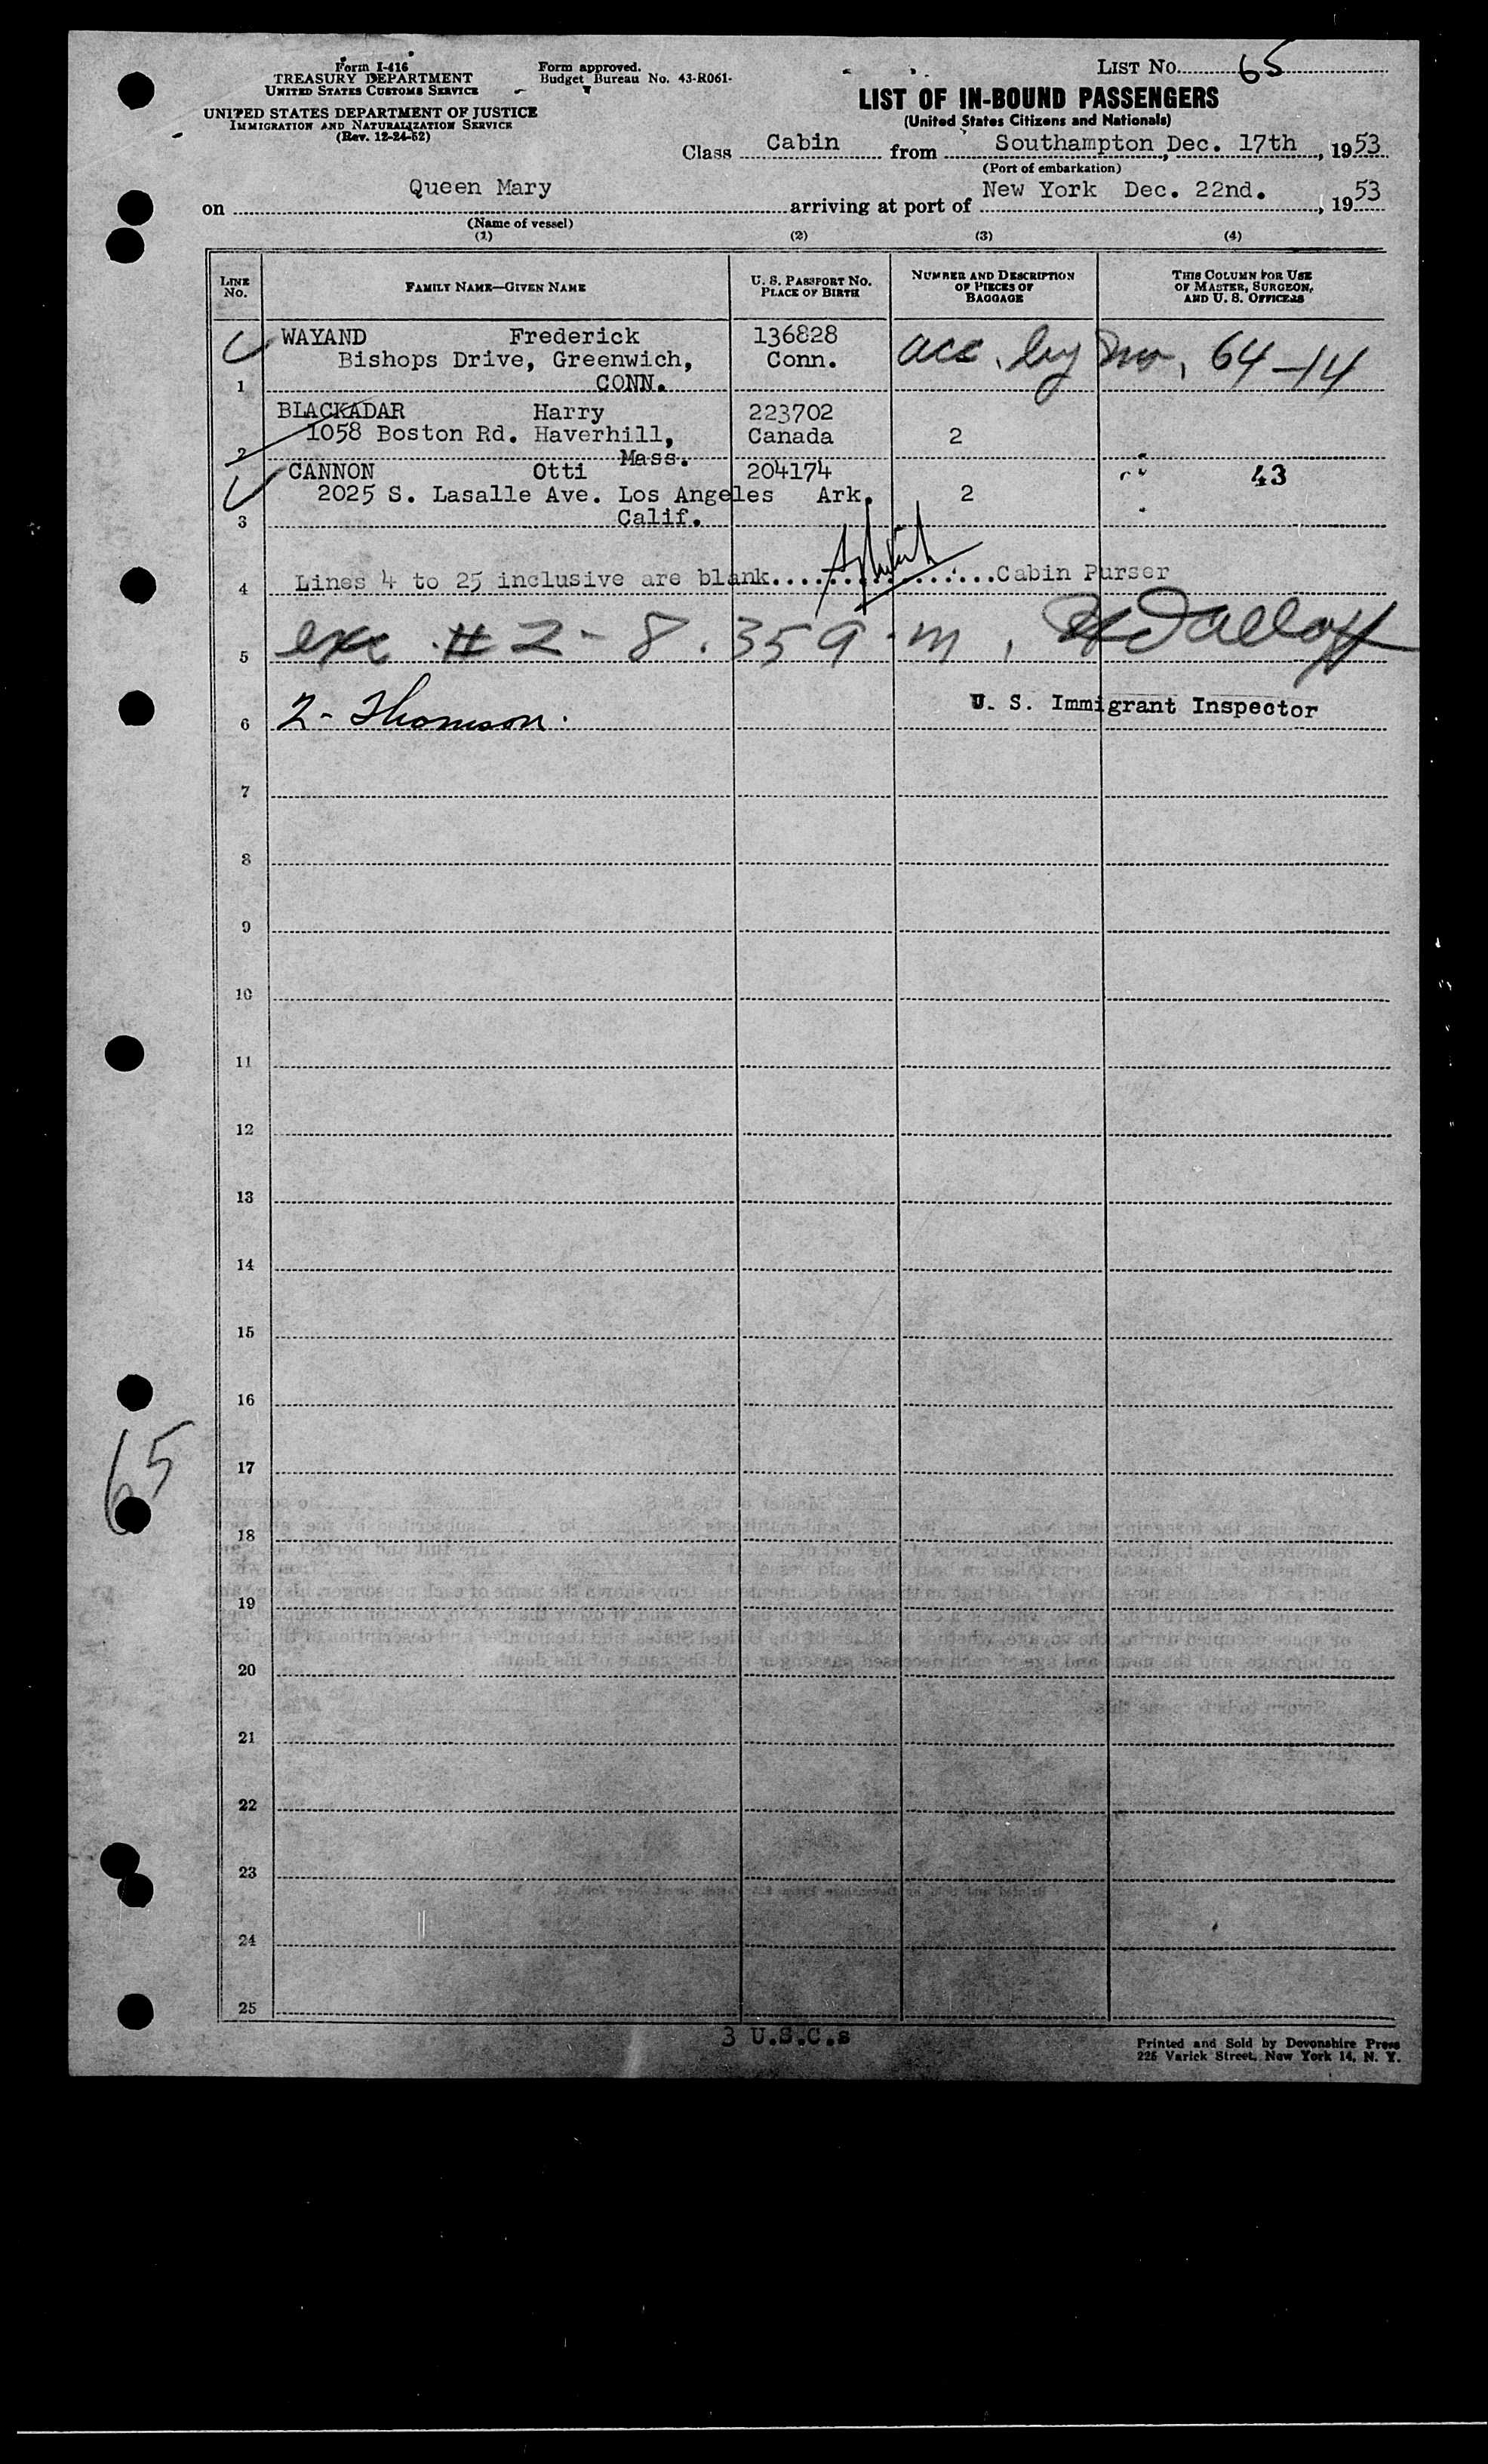 Form I-416
TREASURY DEPARTMENT
UNITED STATES CUSTOMS SERVICE
UNITED STATES DEPARTMENT OF JUSTICE
IMMIGRATION AND NATURALIZATION SERVICE
(Rev. 12-24-52)
Form approved.
Budget Bureau No. 43-R061-
LIST NO. 65
LIST OF IN-BOUND PASSENGERS
(United States Citizens and Nationals)
Class Cabin from Southampton, Dec. 17th, 1953
(Port of embarkation)
on Queen Mary arriving at port of New York Dec. 22nd., 1953
(Name of vessel)
(1) (2) (3) (4)
LINE NO. FAMILY NAME—GIVEN NAME U. S. PASSPORT NO. PLACE OF BIRTH NUMBER AND DESCRIPTION OF PIECES OF BAGGAGE THIS COLUMN FOR USE OF MASTER, SURGEON, AND U. S. OFFICERS
WAYAND Frederick 136828 acc. by mo, 64-14
Bishops Drive, Greenwich, Conn.
1 CONN.
BLACKADAR Harry 223702
1058 Boston Rd. Haverhill, Canada 2
2 Mass.
CANNON Otti 204174 43
2025 S. Lasalle Ave. Los Angeles Ark. 2
3 Calif.
4 Lines 4 to 25 inclusive are blank.................Cabin Purser
5 exc. #2-8.359.m,
U. S. Immigrant Inspector
6 2- Thomson.
7
8
9
10
11
12
13
14
15
16
17
65
18
19
20
21
22
23
24
25
3 U.S.C.s
Printed and Sold by Devonshire Press
225 Varick Street, New York 14, N. Y.